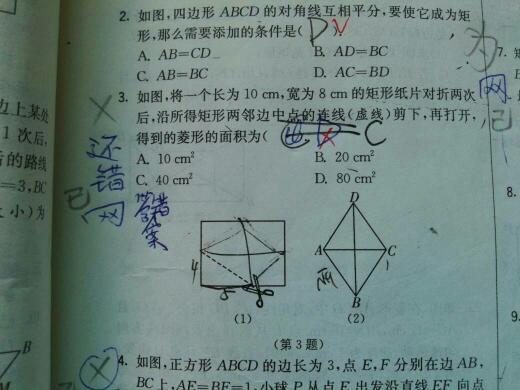 2. 如图,四边形 ABCD 的对角线互相平分,要使它成为矩
形,那么需要添加的条件是( D )
A. AB=CD B. AD=BC
C. AB=BC D. AC=BD
3. 如图,将一个长为 10 cm,宽为 8 cm 的矩形纸片对折两次
后,沿所得矩形两邻边中点的连线(虚线)剪下,再打开,
得到的菱形的面积为( C
A. 10 cm² B. 20 cm²
C. 40 cm² D. 80 cm²
4
5
D
A C
B
(1) (2)
(第 3 题)
4. 如图,正方形 ABCD 的边长为 3,点 E,F 分别在边 AB,
BC 上,AE=BF=1,小球 P 从点 E 出发沿直线 EF 向点
边上某处
1 次后,
后的路线
=3,BC
大小)为
B
还
错
网
答错
案
为
网
己
7.
8.
9.